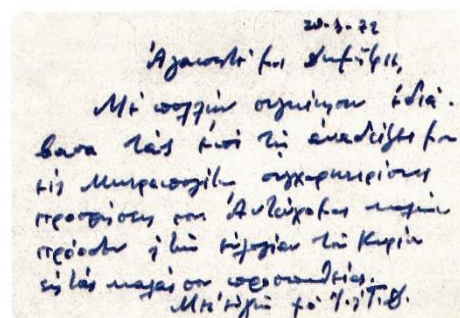 20-3-72
Ἀγαπητέ μου Δημήτρη,
Μέ πολλήν συγκίνησιν ἐδιά-
βασα τάς ἐπί τῇ ἀναδείξει μου
εἰς Μητροπολίτην συγχαρητηρίους
προσρήσεις σου. Ἀντεύχομαι
τήν εὐλογίαν τοῦ Κυρίου
εἰς τάς καλάς σου προσπαθείας.